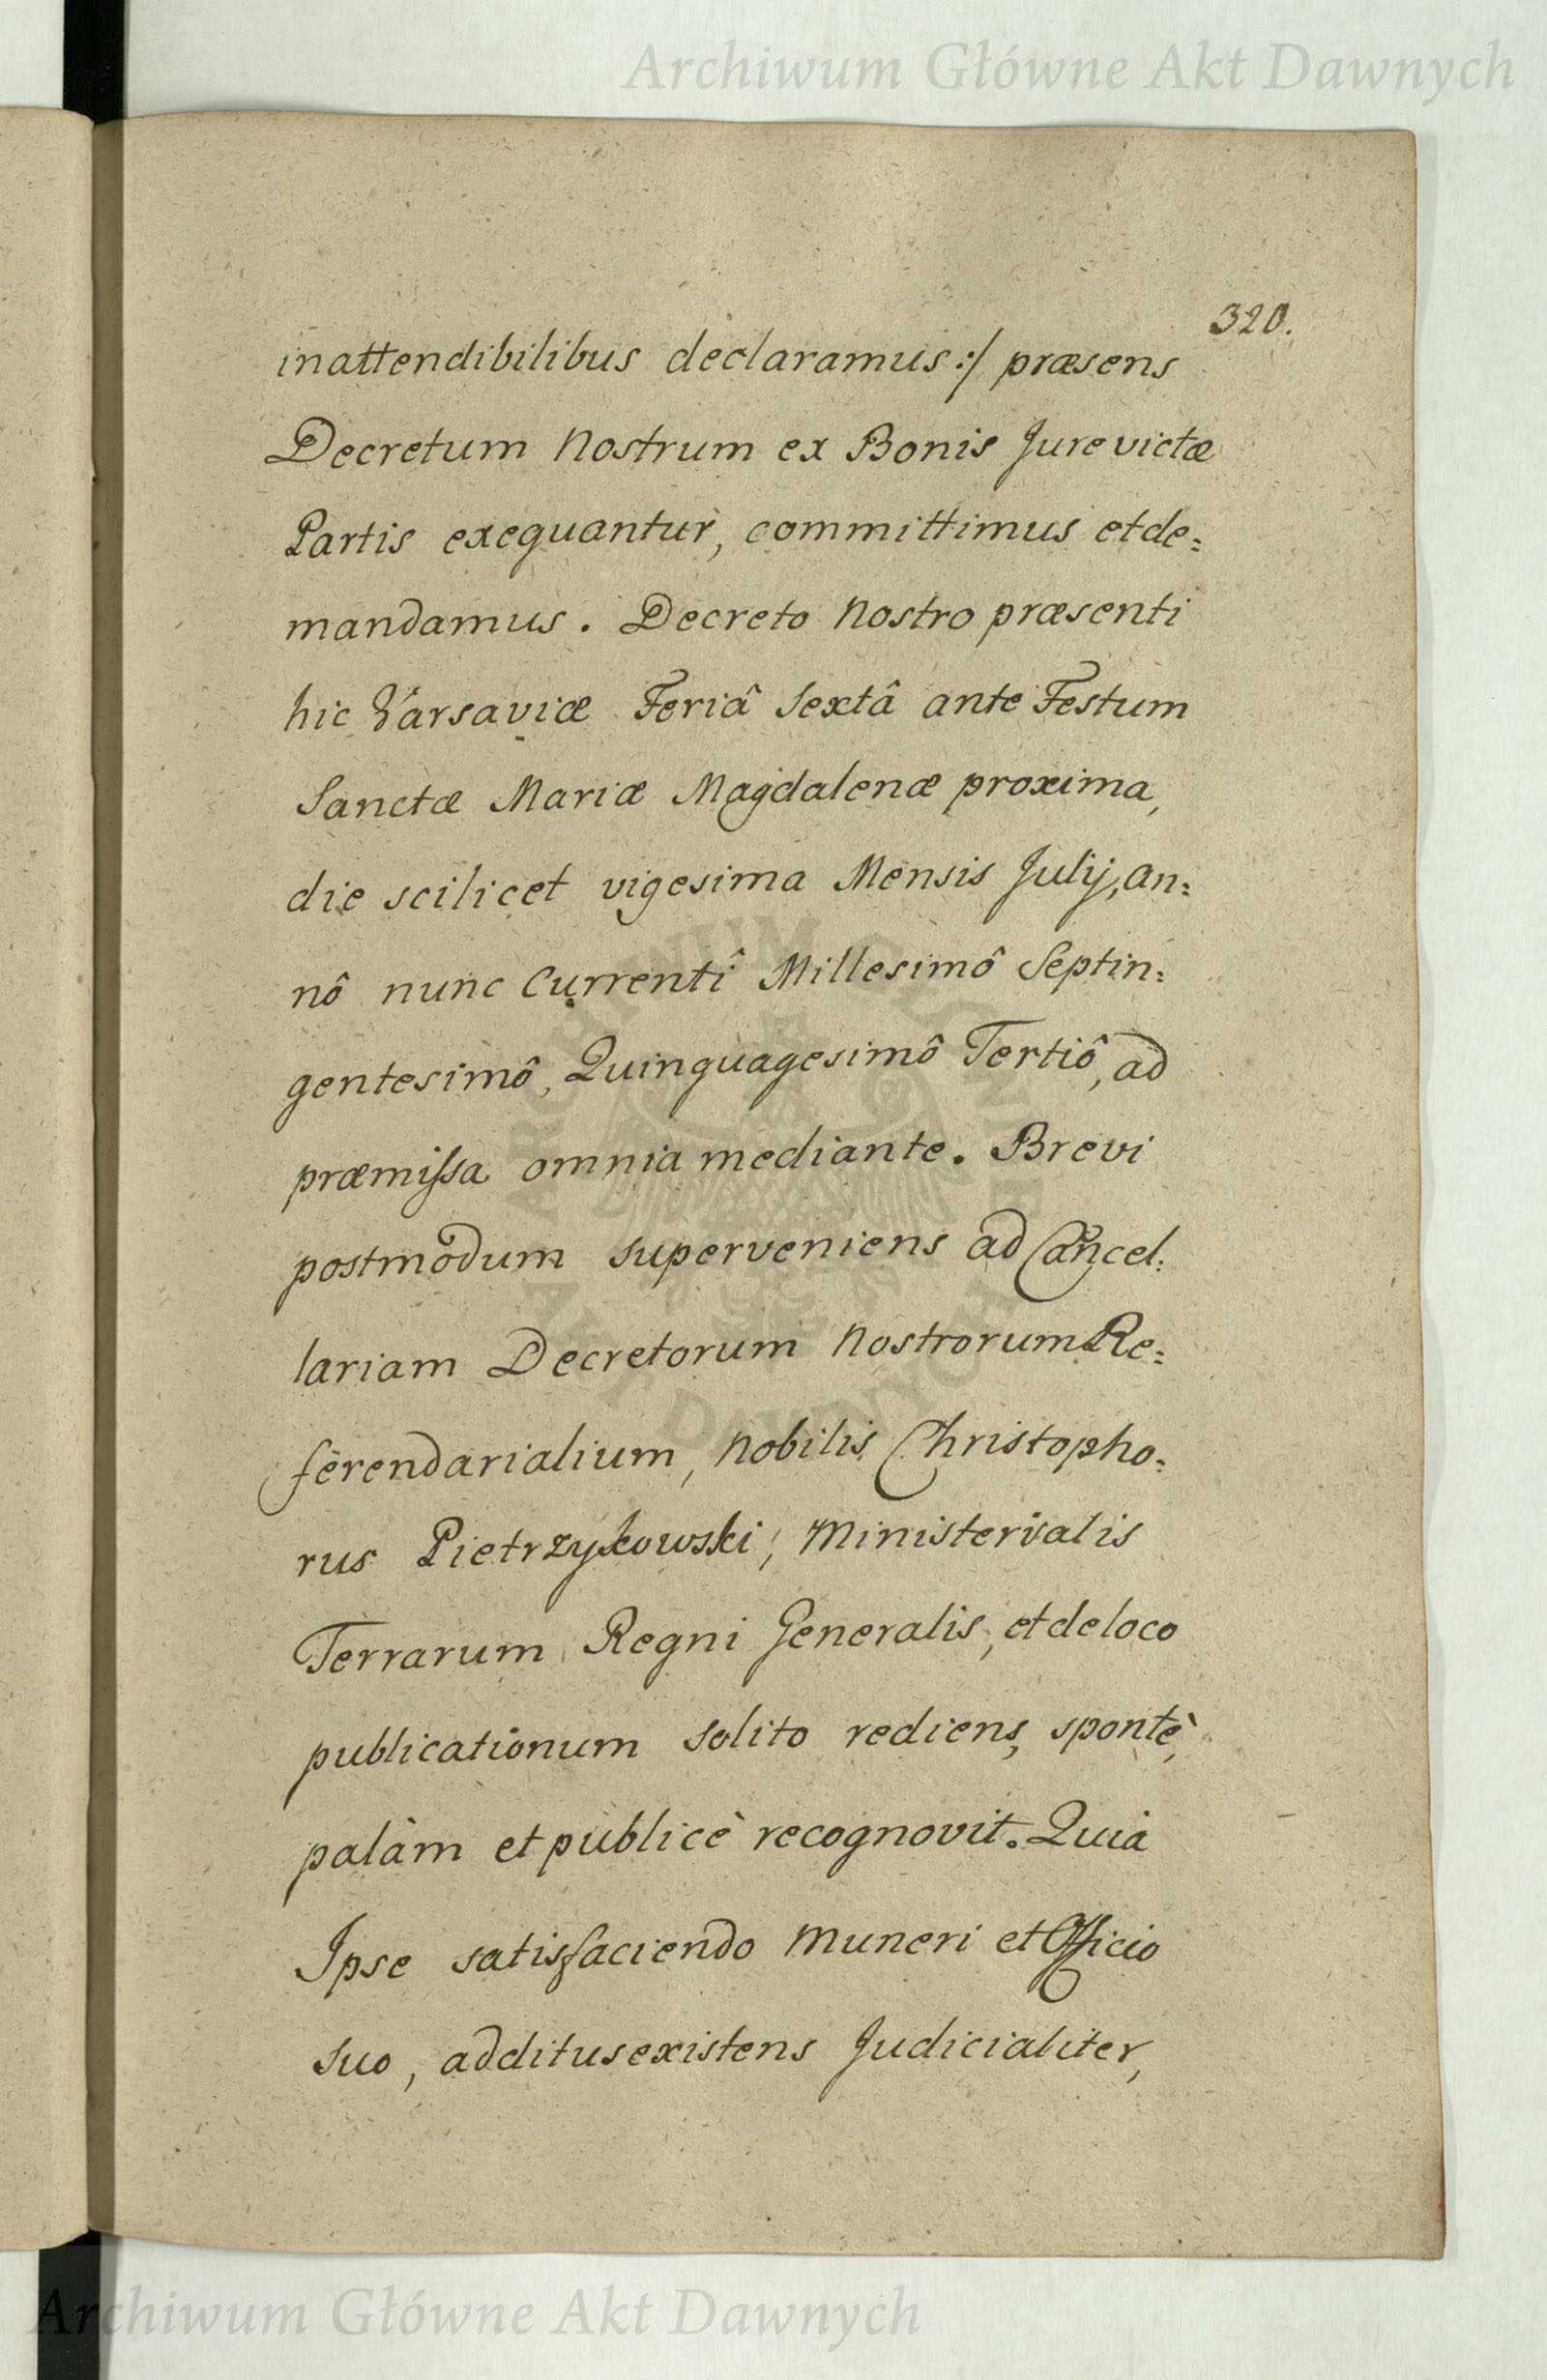 Archiwum Główne Akt Dawnych
320.
inattendibilibus declaramus:/ præsens
Decretum Nostrum ex Bonis Jure victæ
Partis exequantur, committimus et de=
mandamus. Decreto Nostro præsenti
hic Varsaviæ Feriâ Sextâ ante Festum
Sanctæ Mariæ Magdalenæ proxima,
die scilicet vigesima Mensis Julij, an=
nô nunc Currentî Millesimô Septin=
gentesimô, Quinquagesimô Tertiô, ad
præmissa omnia mediante. Brevi
postmodum superveniens ad Cancel=
lariam Decretorum Nostrorum Re=
ferendarialium, Nobilis Christopho=
rus Pietrzykowski, Ministerialis
Terrarum Regni Generalis, et de loco
publicationum solito rediens, spontè,
palàm et publicè recognovit. Quia
Ipse satisfaciendo Muneri et Officio
suo, additus existens Judicialiter,
ARCHIWUM GŁÓWNE AKT DAWNYCH
Archiwum Główne Akt Dawnych